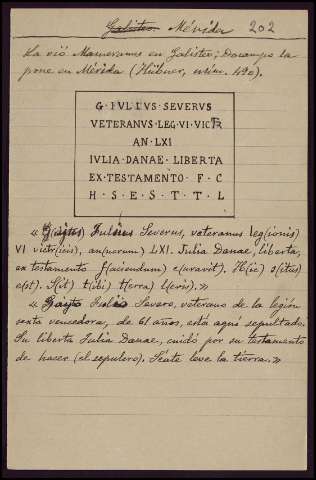 Galisteo Mérida 202
La vió Mameranus en Galisteo; Docampo la
pone en Mérida (Hübner, núm. 490).
G·IVLIVS·SEVERVS
VETERANVS·LEG·VI·VICTR
AN·LXI
IVLIA·DANAE·LIBERTA
EX·TESTAMENTO·F·C
H·S·E·S·T·T·L
« G(aius) Julius Severus, veteranus leg(ionis)
VI victr(icis), an(norum) LXI. Julia Danae, liberta,
ex testamento f(aciendum) c(uravit). H(ic) s(itus)
e(st). S(it) t(ibi) t(erra) l(evis).»
« Gayo Julio Severo, veterano de la legión
sexta vencedora, de 61 años, está aquí sepultado.
Su liberta Julia Danae, cuidó por su testamento
de hacer (el sepulcro). Séate leve la tierra.»